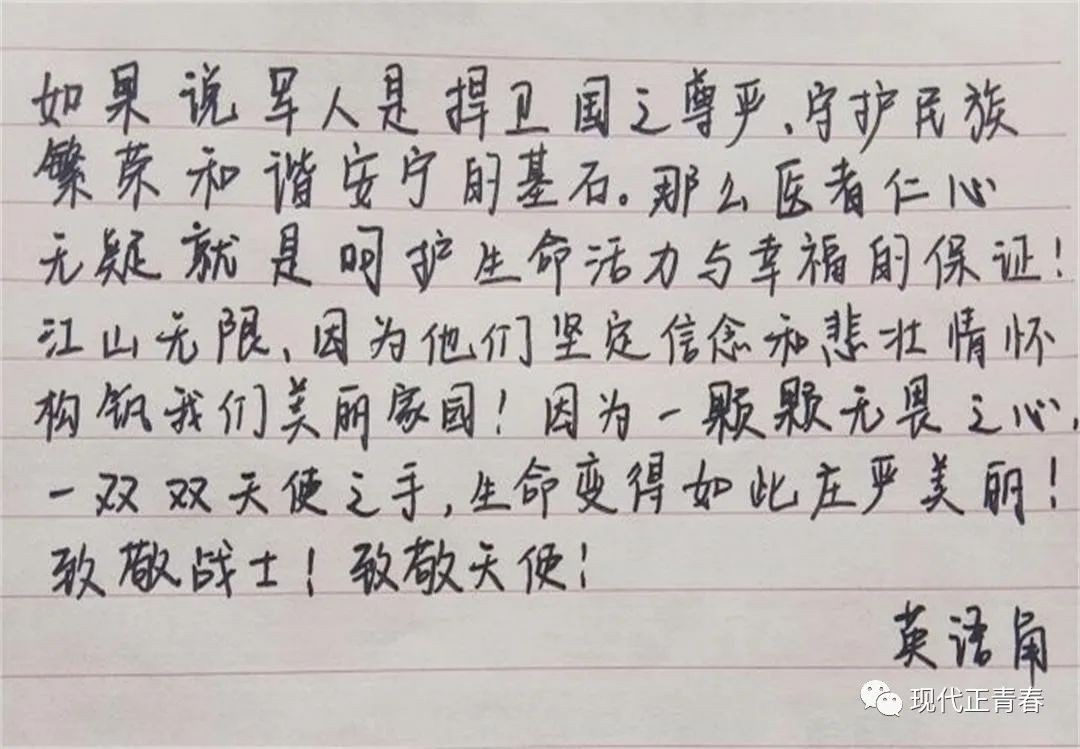 如果说军人是捍卫国之尊严、守护民族
繁荣和谐安宁的基石。那么医者仁心
无疑就是呵护生命活力与幸福的保证！
江山无限、因为他们坚定信念和悲壮情怀
构筑我们美丽家园！因为一颗颗无畏之心，
一双双天使之手，生命变得如此庄严美丽！
致敬战士！致敬天使！
英语角
现代正青春